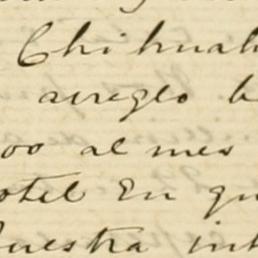 Chihuah
arreglo h
00 al mes
otel En qu
uestra int